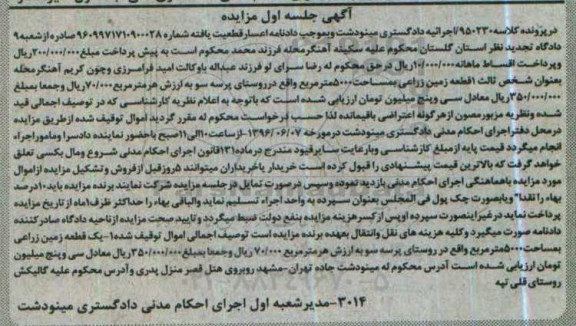 آگهی جلسه اول مزایده
درپرونده کلاسه ۹۵۰۲۳۰/اجرائیه دادگستری مینودشت وبموجب دادنامه اعسار قطعیت یافته شماره ۹۶۰۹۹۷۱۷۱۰۹۰۰۰۲۸ صادره ازشعبه۹
دادگاه تجدید نظر استان گلستان محکوم علیه سکینه آهنگرمحله فرزند محمد محکوم است به پیش پرداخت مبلغ۲۰۰/۰۰۰/۰۰۰ریال
وپرداخت اقساط ماهانه۱۰/۰۰۰/۰۰۰ریال درحق محکوم له رضا سرای لو فرزند عبداله باوکالت امید فرامرزی وچون کریم آهنگرمحله
بعنوان شخص ثالث ۱قطعه زمین زراعی بمساحت۵۰۰۰مترمربع واقع درروستای پرسه سو به ارزش هرمترمربع۷۰/۰۰۰ریال وجمعا بمبلغ
۳۵۰/۰۰۰/۰۰۰ریال معادل سی وپنج میلیون تومان ارزیابی شده است که باتوجه به اعلام نظریه کارشناسی که در توصیف اجمالی قید
شده ونظریه مزبورمصون ازهرگونه اعتراضی باقیمانده لذا حسب درخواست محکوم له مقرر گردید اموال توقیف شده ازطریق مزایده
درمحل دفتراجرای احکام مدنی دادگستری مینودشت درمورخه ۱۳۹۶/۰۶/۰۷-ازساعت۱۰الی۱۱صبح باحضور نماینده دادسرا ومامور اجراء
انجام میگردد قیمت پایه ازمبلغ کارشناسی وبارعایت سایرقیود مندرج درماده۱۳۱قانون اجرای احکام مدنی شروع ومال بکسی تعلق
خواهد گرفت که بالاترین قیمت پیشنهادی را قبول کرده است خریدار یاخریداران میتوانند ۵روزقبل ازفروش و تشکیل مزایده ازاموال
مورد مزایده باهماهنگی اجرای احکام مدنی بازدید نموده وسپس درصورت تمایل درجلسه مزایده شرکت نمایند برنده مزایده باید۱۰درصد
بهاء را نقدا" ویابصورت چک پول فی المجلس بعنوان سپرده به واحد اجراء تسلیم نماید والباقی بهاء را حداکثر ظرف۱ماه از تاریخ مزایده
پرداخت نماید درغیراینصورت سپرده اوپس ازکسر هزینه مزایده بنفع دولت ضبط میگردد وتایید صحت مزایده ازناحیه دادگاه صادرکننده
دادنامه صورت میگیرد وکلیه هزینه های نقل وانتقال بعهده برنده مزایده است توصیف اجمالی اموال توقیف شده۱-یک قطعه زمین زراعی
بمساحت۵۰۰۰مترمربع واقع در روستای پرسه سو به ارزش هرمترمربع ۷۰/۰۰۰ ریال وجمعا بمبلغ۳۵۰/۰۰۰/۰۰۰ریال معادل سی وپنج میلیون
تومان ارزیابی شده است آدرس محکوم له مینودشت جاده تهران-مشهد روبروی هتل قصر منزل پدری و آدرس محکوم علیه گالیکش
روستای قلی تپه
۳۰۱۴-مدیرشعبه اول اجرای احکام مدنی دادگستری مینودشت